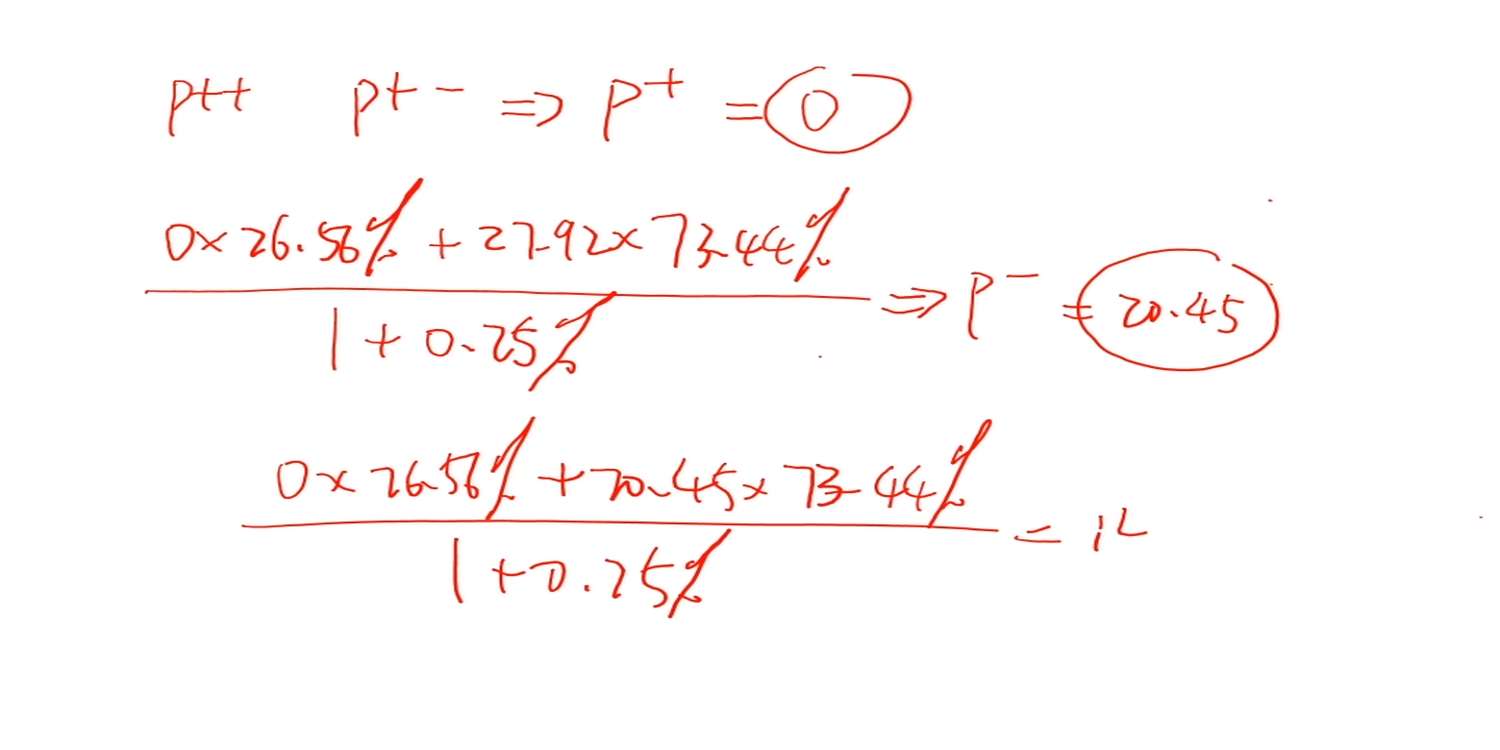 P++ P+- ⇒ P⁺ = 0
0×26.56% + 27.92×73.44%
1+0.25%
⇒ P⁻ = 20.45
0×26.56% + 20.45×73.44%
1+0.25%
=